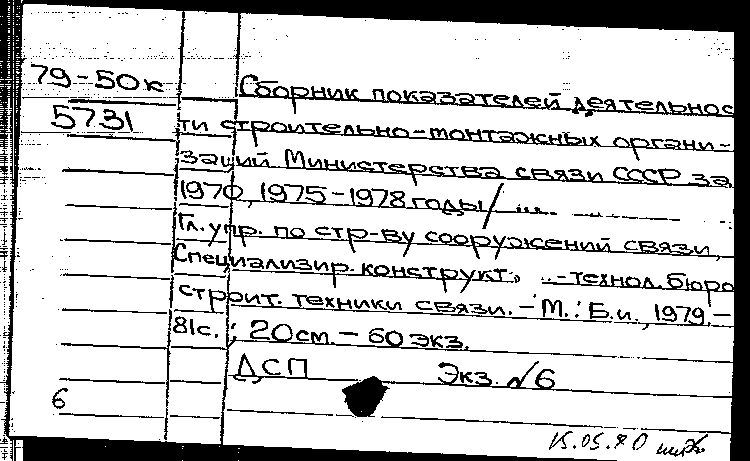 79-50к
5731
Сборник показателей деятельнос
ти строительно-монтажных органи-
заций Министерства связи СССР за
1970, 1975-1978 годы / ... ...
Гл. упр. по стр-ву сооружений связи,
Специализир. конструкт., ...-технол. бюро
строит. техники связи. - М.: Б.и., 1979.-
81с.; 20см. - 60 экз.
ДСП Экз. №6
6
15.05.80